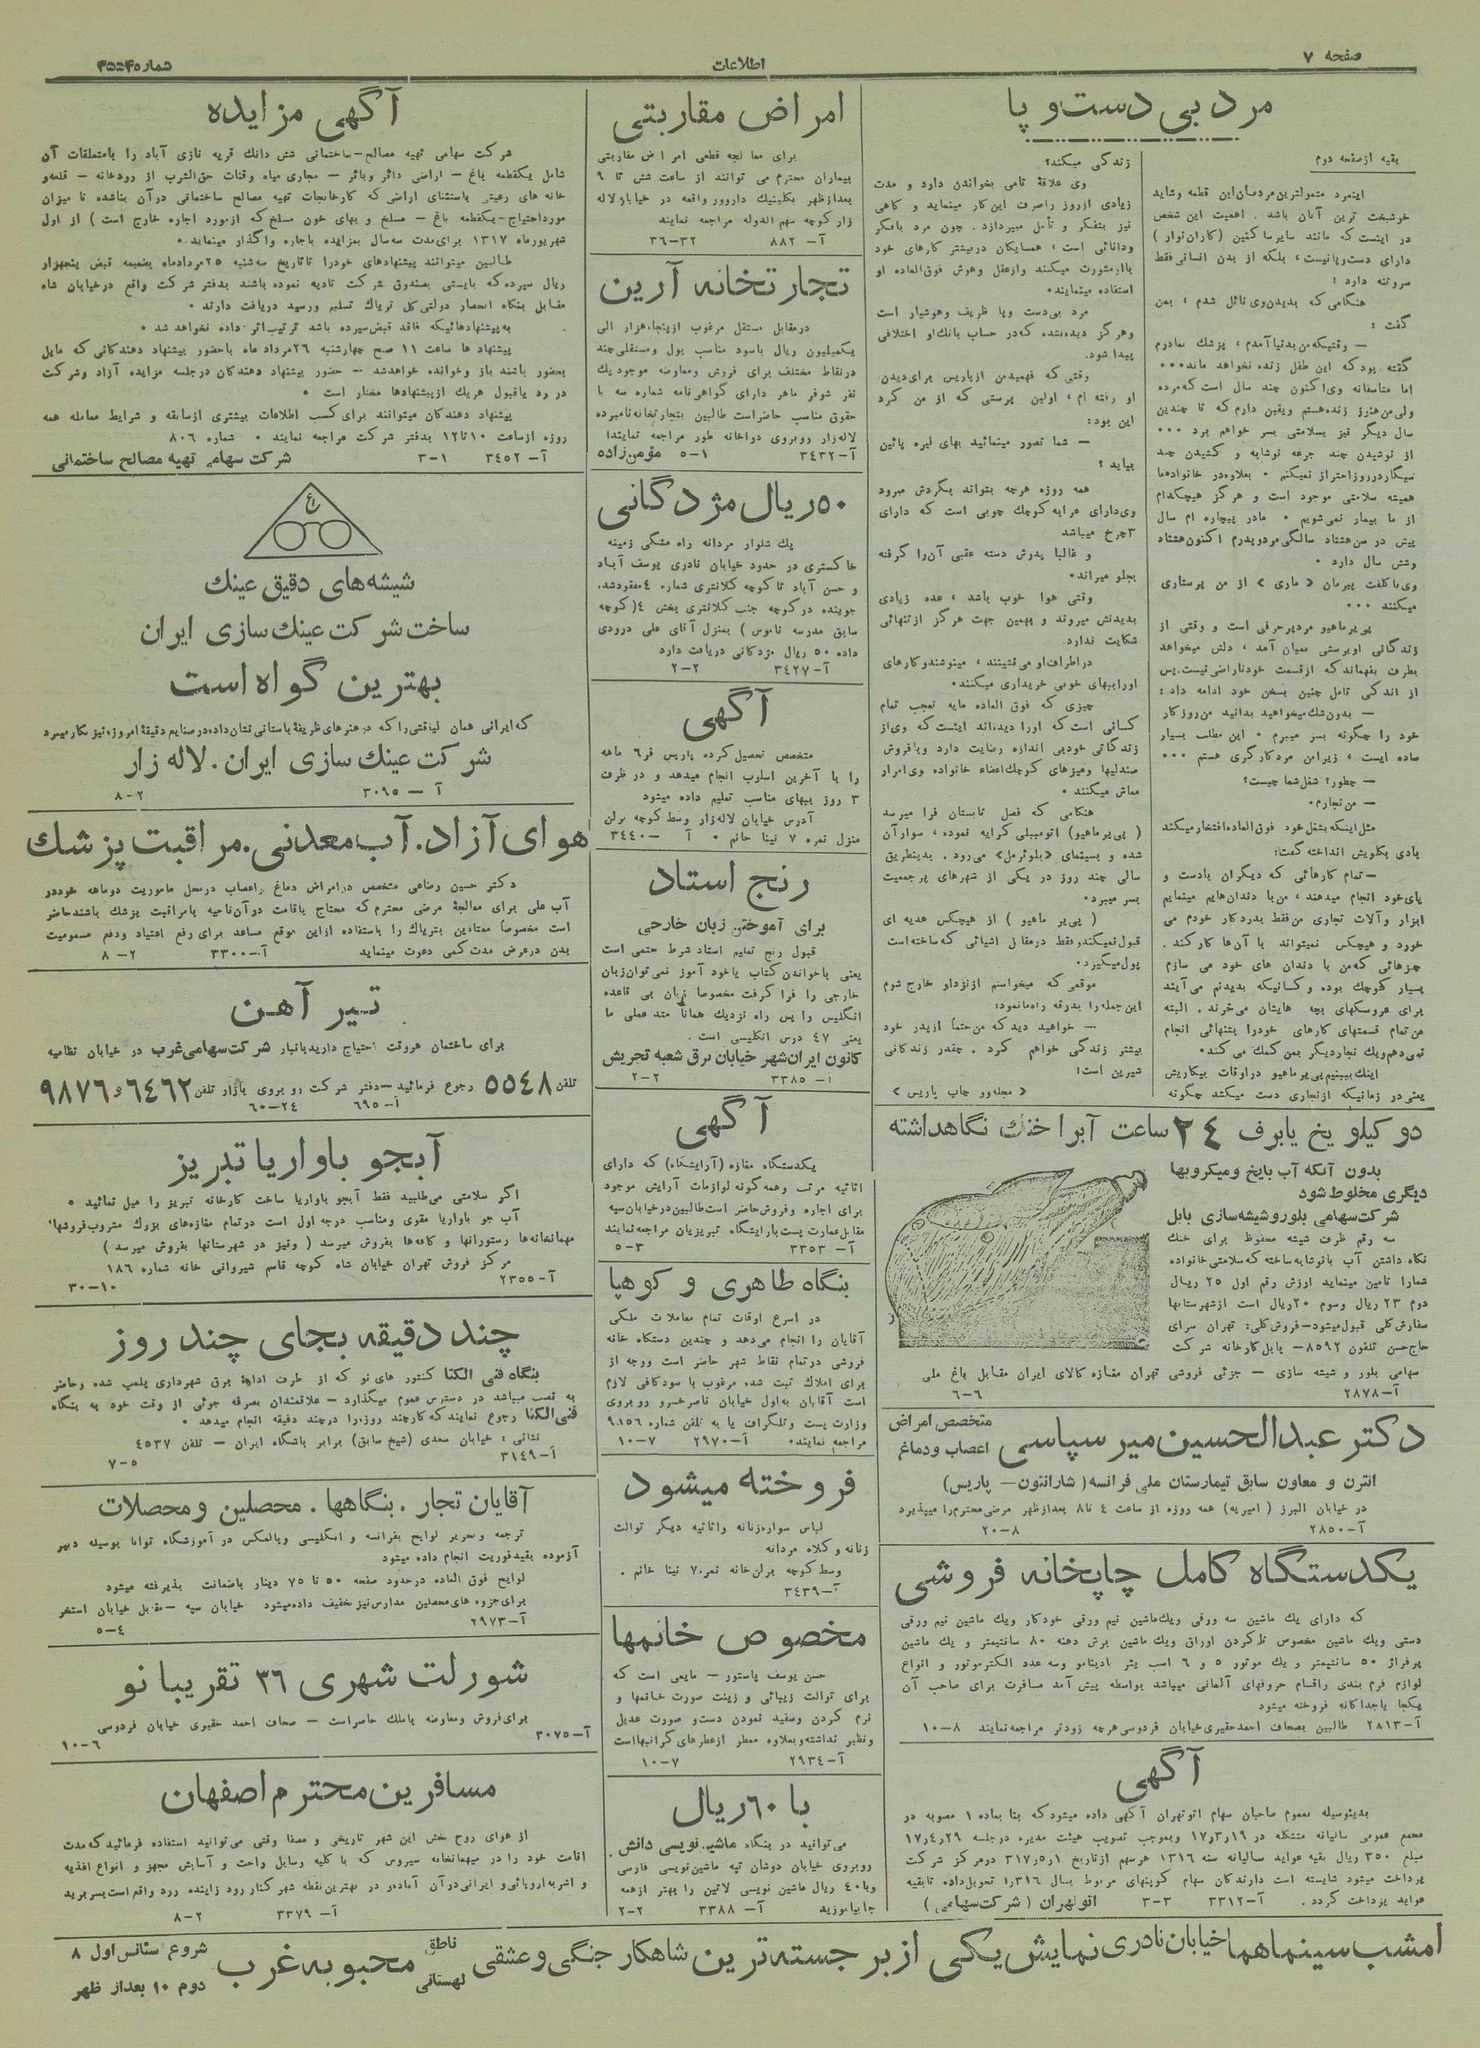 صفحه ۷
اطلاعات
شماره ۳۵۵۴
مرد بی دست و پا
بقیه از صفحه دوم
اینمرد متمولترین مردمان این قطعه و شاید
خوشبخت ترین آنان باشد . اهمیت این شخص
در اینست که مانند سایر ساکنین (
دارای دست و پا نیست، بلکه از بدن انسانی فقط
سر و تنه دارد :
هنگامی که بدیدن وی نائل شدم ، بمن
گفت :
— وقتیکه من بدنیا آمدم ، پزشک بمادرم
گفته بود که این طفل زنده نخواهد ماند ...
اما متأسفانه وی اکنون چند سال است که مرده
ولی من هنوز زنده هستم و یقین دارم که تا چندین
سال دیگر نیز بسلامتی بسر خواهم برد ...
از نوشیدن چند جرعه نوشابه و کشیدن چند
سیگار در روز احتراز نمیکنم . بعلاوه در خانواده ما
همیشه سلامتی موجود است و هرگز هیچکدام
از ما بیمار نمی شویم . مادر بیچاره ام سال
پیش در سن هشتاد سالگی مرد و پدرم اکنون هشتاد
و شش سال دارد .
وی با کلفت پیرمان « ماری » از من پرستاری
میکنند ...
پی یر ماهیو مرد پر حرفی است و وقتی از
زندگانی او پرسشی بمیان آمد ، دلش میخواهد
بطرف بفهماند که از قسمت خود ناراضی نیست. پس
از اندکی تامل چنین بسخن خود ادامه داد :
— بدون شك میخواهید بدانید من روزگار
خود را چگونه بسر میبرم . این مطلب بسیار
ساده ایست ، زیرا من مرد کارگری هستم ...
— چطور؟ شغل شما چیست؟
— من نجارم .
مثل اینکه بشغل خود فوق العاده افتخار میکند
بادی بگلویش انداخته گفت:
— تمام کارهائی که دیگران با دست و
پای خود انجام میدهند ، من با دندانهایم مینمایم
ابزار و آلات تجاری من فقط بدرد کار خودم می
خورد و هیچکس نمیتواند با آن ها کار کند .
چیزهائی که من با دندان های خود می سازم
بسیار کوچك بوده و کسانیکه بدیدنم می آیند
برای عروسکهای بچه هایشان می خرند . البته
من تمام قسمتهای کارهای خود را بتنهائی انجام
نمی دهم و یك نجار دیگر بمن کمك می کند .
اینك ببینیم پی یر ماهیو در اوقات بیکاریش
یعنی در زمانیکه از نجاری دست میکشد چگونه
زندگی میکند؟
وی علاقهٔ تامی بخواندن دارد و مدت
زیادی از روز را صرف این کار مینماید و گاهی
نیز بتفکر و تأمل میپردازد . چون مرد با فکر
و دانائی است ، همسایگان در بیشتر کارهای خود
با او مشورت میکنند و از عقل و هوش فوق العاده او
استفاده مینمایند.
مرد بی دست و پا ظریف و هوشیار است
و هرگز دیده نشده که در حساب بانك او اختلافی
پیدا شود.
وقتی که فهمید من از پاریس برای دیدن
او رفته ام ، اولین پرسشی که از من کرد
این بود:
— شما تصور مینمائید بهای لیره پائین
بیاید ؟
همه روزه هر چه بتواند بگردش میرود
وی دارای عرابه کوچك چوبی است که دارای
۳ چرخ میباشد
و غالباً پدرش دسته عقبی آن را گرفته
بجلو میراند .
وقتی هوا خوب باشد ، عده زیادی
بدیدنش میروند و بهمین جهت هرگز از تنهائی
شکایت ندارد.
در اطراف او می نشینند ، مینوشند و کارهای
او را ببهای خوبی خریداری میکنند .
چیزی که فوق العاده مایه تعجب تمام
کسانی است که او را دیده اند اینست که وی از
زندگانی خود بی اندازه رضایت دارد و با فروش
صندلیها و میزهای کوچك اعضاء خانواده وی امرار
معاش میکنند .
هنگامی که فصل تابستان فرا میرسد
( پی یر ماهیو) اتومبیلی کرایه نموده ، سوار آن
شده و بسینمای «بلوئرمل» می رود . بدینطریق
سالی چند روز در یکی از شهرهای پر جمعیت
بسر میبرد.
( پی یر ماهیو ) از هیچکس هدیه ای
قبول نمیکند و فقط در مقابل اشیائی که ساخته است
پول میگیرد .
موقعی که میخواستم از نزد او خارج شوم
این جمله را بدرقه راهم نمود:
— خواهید دید که من حتماً از پدر خود
بیشتر زندگی خواهم کرد . چقدر زندگانی
شیرین است!
« چاپ پاریس »
دو کیلو یخ یا برف ۲۴ ساعت آبرا خنك نگاهداشته
بدون آنکه آب بایخ و میکروبها
دیگری مخلوط شود
شرکت سهامی بلور و شیشه سازی بابل
سه رقم ظرف شیشه محفوظ برای خنك
نگاه داشتن آب یا نوشابه ساخته که سلامتی خانواده
شمارا تامین مینماید ارزش رقم اول ۲۵ ریال
دوم ۲۳ ریال وسوم ۲۰ ریال است از شهرستانها
سفارش کلی قبول میشود - فروش کلی: تهران سرای
حاج حسن تلفون ۸۵۹۲ - بابل کارخانه شرکت
سهامی بلور و شیشه سازی — جزئی فروشی تهران مغازه کالای ایران مقابل باغ ملی
آ-۲۸۷۸ ۶-۶
دکتر عبدالحسین میرسپاسی متخصص امراض
اعصاب و دماغ
انترن و معاون سابق تیمارستان ملی فرانسه (شارانتون- پاریس)
در خیابان البرز ( امیریه) همه روزه از ساعت ٤ تا ۸ بعداز ظهر مرضی محترم را میپذیرد
آ-۲۸۵۰ ۸-۲۰
یکدستگاه کامل چاپخانه فروشی
که دارای یك ماشین سه ورقی ویك ماشین نیم ورقی خودکار ویك ماشین نیم ورقی
دستی ویك ماشین مخصوص تاکردن اوراق ویك ماشین برش دهنه ۸۰ سانتیمتر و یك ماشین
پرفراژ ۵۰ سانتیمتر و یك موتور ۵ و ۶ اسب بنز بادینامو وسه عدد الکتروموتور و انواع
لوازم فرم بندی و اقسام حروفهای آلمانی میباشد بواسطه پیش آمد مسافرت برای صاحب آن
یکجا یا جداگانه فروخته میشود
آ-۲۸۱۳ طالبین بصحاف احمد حقیری خیابان فردوسی هر چه زودتر مراجعه نمایند ۸-۱۰
آگهی
بدینوسیله بعموم صاحبان سهام اتوتهران آگهی داده میشود که بنا بماده ۱ مصوبه در
مجمع عمومی سالیانه متشکله در ۱۷٫۳٫۱۹ و بموجب تصویب هیئت مدیره در جلسه ۱۷٫۴٫۲۹
مبلغ ۳۵۰ ریال بقیه عواید سالیانه سنه ۱۳۱۶ هر سهم از تاریخ ۳۱۷٫۵٫۱ در مرکز شرکت
پرداخت میشود شایسته است دارندگان سهام کوپنهای مربوط بسال ۱۳۱۶ را تحویل داده تا بقیه
عواید پرداخت گردد. آ-۳۳۱۲ ۳-۳ اتوتهران ( شرکت سهامی )
امراض مقاربتی
برای معالجه قطعی امراض مقاربتی
بیماران محترم می توانند از ساعت شش تا ۹
بعداز ظهر بکلینیك داروور واقعه در خیابان لاله
زار کوچه سهم الدوله مراجعه نمایند
آ- ۸۸۲ ۳۲-۳۶
تجارتخانه آرین
در مقابل مستقل مرغوب از پنجاه هزار الی
یکمیلیون ریال باسود مناسب پول و مستقلی چند
در نقاط مختلف برای فروش و معاوضه موجود یك
نفر شوفر ماهر دارای گواهی نامه شماره سه با
حقوق مناسب حاضر است طالبین بتجارتخانه نامبرده
لاله زار روبروی دواخانه طور مراجعه نمایند
آ-۳۴۳۲ ۱-۵ مؤمن زاده
۵۰ ریال مژدگانی
یك شلوار مردانه راه مشگی زمینه
خاکستری در حدود خیابان نادری یوسف آباد
و حسن آباد تا کوچه کلانتری شماره ٤ مفقود شد.
جوینده در کوچه جنب کلانتری بخش ٤ (کوچه
سابق مدرسه ناموس ) بمنزل آقای علی درودی
داده ۵۰ ریال مژدگانی دریافت دارد
آ-۳۴۲۷ ۲-۲
آگهی
متخصص تحصیل کرده پاریس فر ۶ ماهه
را با آخرین اسلوب انجام میدهد و در ظرف
۳ روز ببهای مناسب تعلیم داده میشود
آدرس خیابان لاله زار وسط کوچه برلن
منزل نمره ۷ نینا خانم . آ -۳۴۴۰
رنج استاد
برای آموختن زبان خارجی
قبول رنج تعلیم استاد شرط حتمی است
یعنی با خواندن کتاب یا خود آموز نمی توان زبان
خارجی را فرا گرفت مخصوصا زبان بی قاعده
انگلیس را پس راه نزدیك همانا متد عملی ما
یعنی ۴۷ درس انگلیسی است .
کانون ایران شهر خیابان برق شعبه تجریش
آ- ۳۳۸۵ ۲-۲
آگهی
یکدستگاه مغازه (آرایشگاه) که دارای
اثاثیه مرتب و همه گونه لوازمات آرایش موجود
برای اجاره و فروش حاضر است طالبین در خیابان سپه
مقابل عمارت پست بآرایشگاه تبریزیان مراجعه نمایند
آ- ۳۳۵۳ ۳-۵
بنگاه طاهری و کوهپا
در اسرع اوقات تمام معاملات ملکی
آقایان را انجام می دهد و چندین دستگاه خانه
فروشی در تمام نقاط شهر حاضر است ووجه از
برای املاك ثبت شده مرغوب با سود کافی لازم
است آقایان به اول خیابان ناصر خسرو روبروی
وزارت پست و تلگراف یا به تلفن شماره ۹۱۵۶
مراجعه نمایند. آ-۲۹۷۰ ۷-۱۰
فروخته میشود
لباس سواره زنانه و اثاثیه دیگر توالت
زنانه و کلاه مردانه
وسط کوچه برلن خانه نمره ۷ نینا خانم .
آ-۳۴۳۹
مخصوص خانمها
حسن یوسف پاستور — مایعی است که
برای توالت زیبائی و زینت صورت خانمها و
نرم کردن و سفید نمودن دست و صورت عدیل
و نظیر نداشته و بعلاوه معطر از عطرهای گرانبها است
آ-۲۹۳۴ ۷-۱۰
با ۶۰ ریال
می توانید در بنگاه ماشین نویسی دانش .
روبروی خیابان دوشان تپه ماشین نویسی فارسی
و با ۴۰ ریال ماشین نویسی لاتین را بهتر از همه
جا بیاموزید آ- ۳۳۸۸ ۲-۲
آگهی مزایده
شرکت سهامی تهیه مصالح-ساختمانی شش دانك قریه نازی آباد را بامتعلقات آن
شامل یکقطعه باغ - اراضی دائر و بائر - مجاری میاه و قنات حق الشرب از رودخانه - قلعه و
خانه های رعیتی باستثنای اراضی که کارخانجات تهیه مصالح ساختمانی در آن بنا شده تا میزان
مورد احتیاج-یکقطعه باغ - مسلخ و بهای خون مسلخ که از مورد اجاره خارج است ) از اول
شهریور ماه ۱۳۱۷ برای مدت سه سال بمزایده باجاره واگذار مینماید .
طالبین میتوانند پیشنهادهای خودرا تا تاریخ سه شنبه ۲۵ مرداد ماه بضمیمه قبض پنجهزار
ریال سپرده که بایستی بصندوق شرکت تادیه نموده باشند بدفتر شرکت واقع در خیابان شاه
مقابل بنگاه انحصار دولتی کل تریاك تسلیم و رسید دریافت دارند .
به پیشنهادهائیکه فاقد قبض سپرده باشد ترتیب اثر داده نخواهد شد .
پیشنهاد ها ساعت ۱۱ صبح چهارشنبه ۲۶ مرداد ماه با حضور پیشنهاد دهندگانی که مایل
بحضور باشند باز و خوانده خواهد شد - حضور پیشنهاد دهندگان در جلسه مزایده آزاد و شرکت
در رد یا قبول هریك از پیشنهادها مختار است .
پیشنهاد دهندگان میتوانند برای کسب اطلاعات بیشتری از سابقه و شرایط معامله همه
روزه از ساعت ۱۰ تا ۱۲ بدفتر شرکت مراجعه نمایند . شماره ۸۰۶
آ- ۳۴۵۲ ۱-۳ شرکت سهامی تهیه مصالح ساختمانی
ع
شیشه های دقیق عینك
ساخت شرکت عینك سازی ایران
بهترین گواه است
که ایرانی همان لیاقتی را که در هنرهای ظریفهٔ باستانی نشان داده در صنایع دقیقهٔ امروزه نیز بکار میبرد
شرکت عینك سازی ایران . لاله زار
آ - ۳۰۹۵ ۲-۸
هوای آزاد . آب معدنی . مراقبت پزشك
دکتر حسین رضاعی متخصص در امراض دماغ و اعصاب در محل ماموریت دو ماهه خود در
آب علی برای معالجهٔ مرضی محترم که محتاج باقامت در آن ناحیه با مراقبت پزشك باشند حاضر
است مخصوصاً معتادین بتریاك را با استفاده از این موقع مساعد برای رفع اعتیاد و دفع مسمومیت
بدن در عرض مدت کمی دعوت مینماید آ-۳۳۰۰ ۲-۸
تیر آهن
برای ساختمان هر وقت احتیاج دارید بانبار شرکت سهامی غرب در خیابان نظامیه
تلفن ۵۵۴۸ رجوع فرمائید - دفتر شرکت رو بروی بازار تلفن ۶۴۶۲ و ۹۸۷۶
آ- ۶۹۵ ۲۴-۶۰
آبجو باواریا تبریز
اگر سلامتی می طلبید فقط آبجو باواریا ساخت کارخانه تبریز را میل نمائید .
آب جو باواریا مقوی و مناسب درجه اول است در تمام مغازه های بزرك مشروب فروشها،
مهمانخانه ها رستورانها و کافه ها بفروش میرسد ( و نیز در شهرستانها بفروش میرسد )
مرکز فروش تهران خیابان شاه کوچه قاسم شیروانی خانه شماره ۱۸۶
آ-۲۳۵۵ ۱۰-۳۰
چند دقیقه بجای چند روز
بنگاه فنی الکتا کنتور های نو که از طرف ادارهٔ برق شهرداری پلمب شده و حاضر
به نصب میباشد در دسترس عموم میگذارد - علاقمندان بصرفه جوئی از وقت خود به بنگاه
فنی الکتا رجوع نمایند که کار چند روزه را در چند دقیقه انجام میدهد .
نشانی : خیابان سعدی (شیخ سابق) برابر باشگاه ایران - تلفن ۴۵۳۷
آ-۳۱۴۹ ۵-۷
آقایان تجار . بنگاهها . محصلین و محصلات
ترجمه و تحریر لوایح بفرانسه و انگلیسی و بالعکس در آموزشگاه توانا بوسیله دبیر
آزموده بقید فوریت انجام داده میشود
لوایح فوق العاده در حدود صفحه ۵۰ تا ۷۵ دینار باضمانت پذیرفته میشود
برای جزوه های محصلین مدارس نیز تخفیف داده میشود خیابان سپه - مقابل خیابان استخر
آ-۲۹۷۳ ۴-۵
شورلت شهری ۳۶ تقریبا نو
برای فروش و معاوضه با ملك حاضر است - صحاف احمد حقیری خیابان فردوسی
آ-۳۰۷۵ ۶-۱۰
مسافرین محترم اصفهان
از هوای روح بخش این شهر تاریخی و مصفا وقتی می توانید استفاده فرمائید که مدت
اقامت خود را در میهمانخانه سیروس که با کلیه وسایل راحت و آسایش مجهز و انواع اغذیه
و اشربه اروپائی و ایرانی در آن آماده و در بهترین نقطه شهر کنار رود زاینده رود واقع است بسر برید
آ- ۳۳۷۹ ۲-۸
امشب سینما هما خیابان نادری نمایش یکی از برجسته ترین شاهکار جنگی و عشقی ناطق لهستانی محبوبه غرب شروع سئانس اول ۸
دوم ۱۰ بعداز ظهر